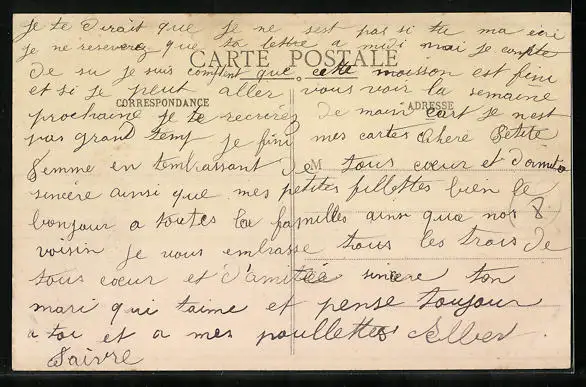 je te dirait que je ne sest pas si tu ma écri
je ne reseverez que ta lettre a midi mai je compte
CARTE POSTALE
de su je suis content que cette moisson est fini
et si je peut aller vous voir la semaine
CORRESPONDANCE
ADRESSE
prochaine je te recrirez de main cart je nest
pas grand temp je fini mes cartes chere petite
femme en tembrassant de tous coeur et damitie
M
sincère ainsi que mes petites fillettes bien le
bonjour a toutes la familles ainsi que nos
(8)
voisin je vous embrasse tous les trois de
tous coeur et d'amitiée sincere ton
mari qui taime et pense toujour
a toi et a mes poullettes Albert
Saivre